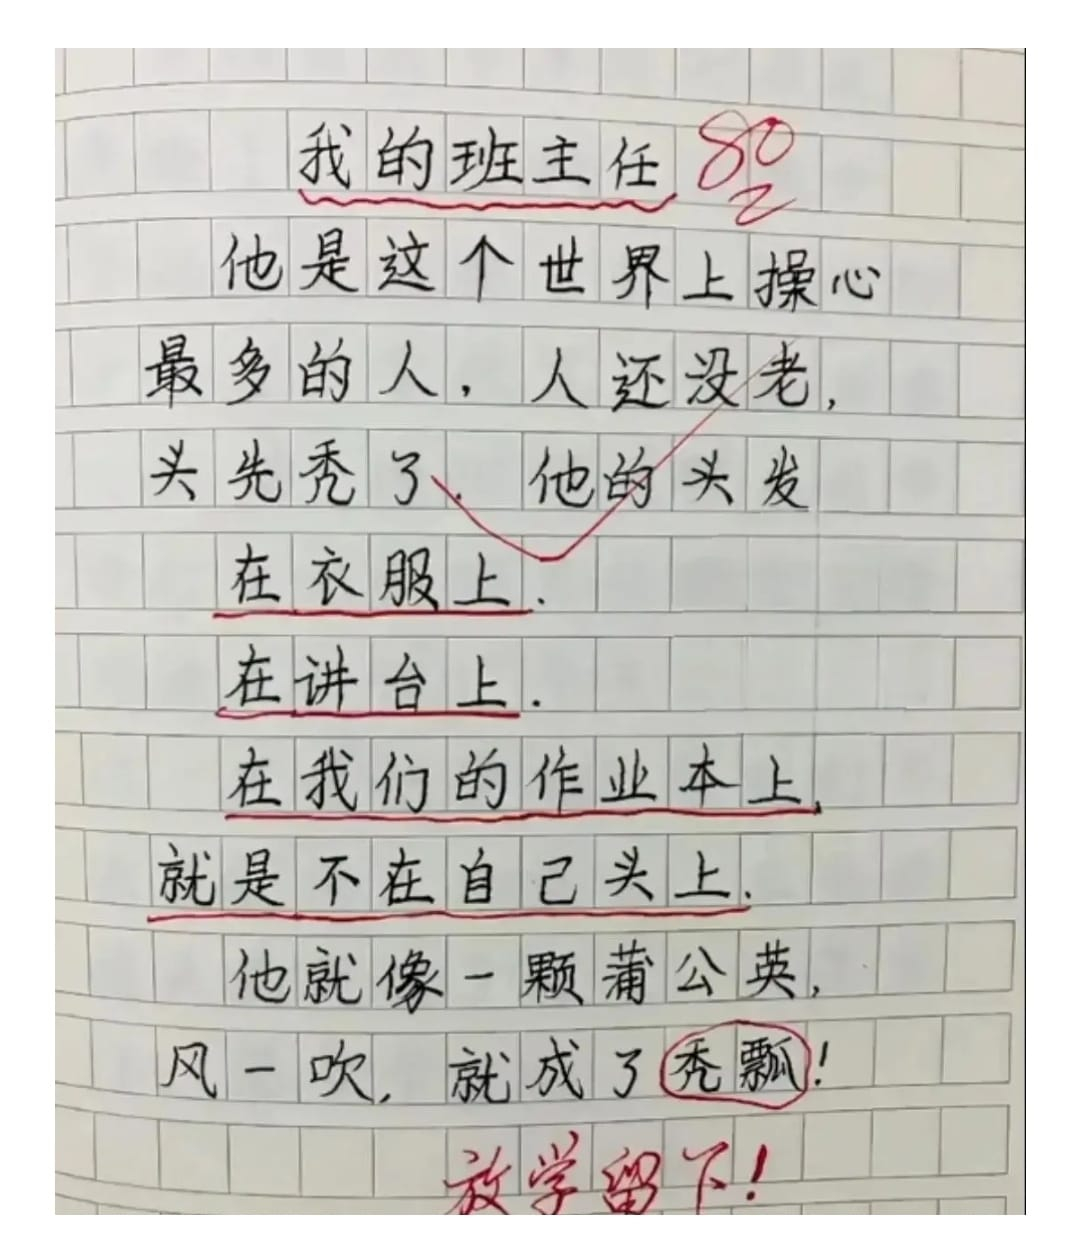 我的班主任 80
他是这个世界上操心
最多的人，人还没老，
头先秃了．他的头发
在衣服上．
在讲台上．
在我们的作业本上，
就是不在自己头上．
他就像一颗蒲公英，
风一吹，就成了秃瓢！
放学留下！